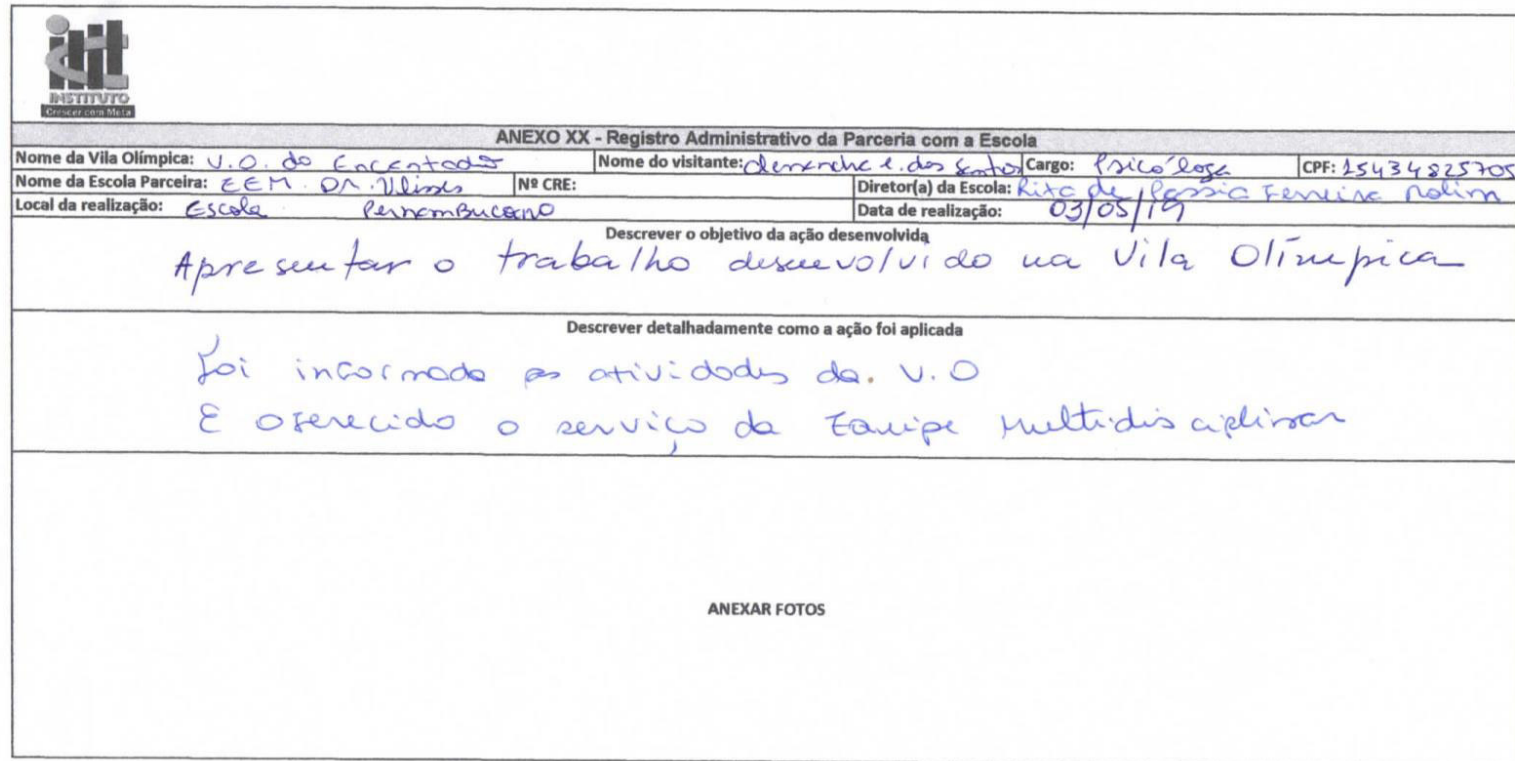 INSTITUTO
Crescer com Meta
ANEXO XX - Registro Administrativo da Parceria com a Escola
Nome da Vila Olímpica: V.O. do Encantado Nome do visitante: e. dos Santos Cargo: Psicóloga CPF: 15434825705
Nome da Escola Parceira: EEM. DR. Ulisses Nº CRE: Diretor(a) da Escola: Rita de Cassia Ferreira Rolim
Local da realização: Escola Pernambucano Data de realização: 03/05/19
Descrever o objetivo da ação desenvolvida
Apresentar o trabalho desenvolvido na Vila Olímpica
Descrever detalhadamente como a ação foi aplicada
Foi informado as atividades da. V.O
E oferecido o serviço da Equipe Multidisciplinar
ANEXAR FOTOS